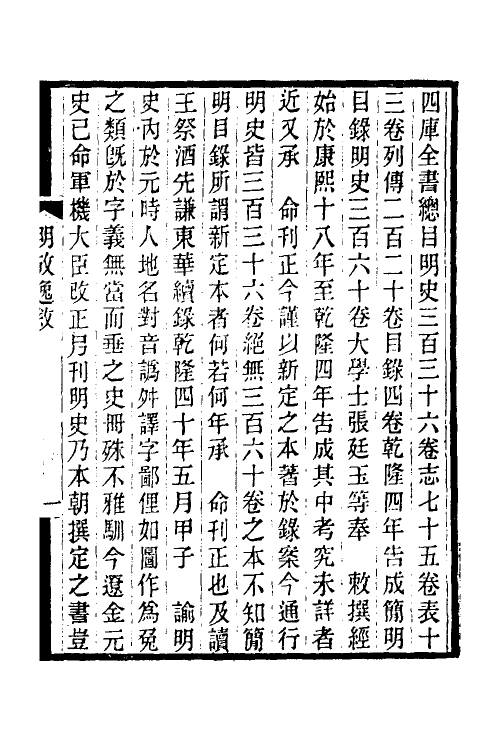 四庫全書總目明史三百三十六卷志七十五卷表十
三卷列傳二百二十卷目錄四卷乾隆四年告成簡明
目錄明史三百六十卷大學士張廷玉等奉　敕撰經
始於康熙十八年至乾隆四年告成其中考究未詳者
近又承　命刊正今謹以新定之本著於錄案今通行
明史皆三百三十六卷絕無三百六十卷之本不知簡
明目錄所謂新定本者何若何年承　命刊正也及讀
王祭酒先謙東華續錄乾隆四十年五月甲子　諭明
史內於元時人地名對音譌舛譯字鄙俚如圖作為兔
之類既於字義無當而垂之史冊殊不雅馴今遼金元
史已命軍機大臣改正另刊明史乃本朝撰定之書豈
明攷逸敘
一